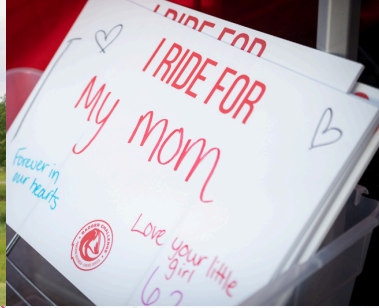 I RIDE FOR
I RIDE FOR
My mom
Forever in
our hearts
Love your little
girl